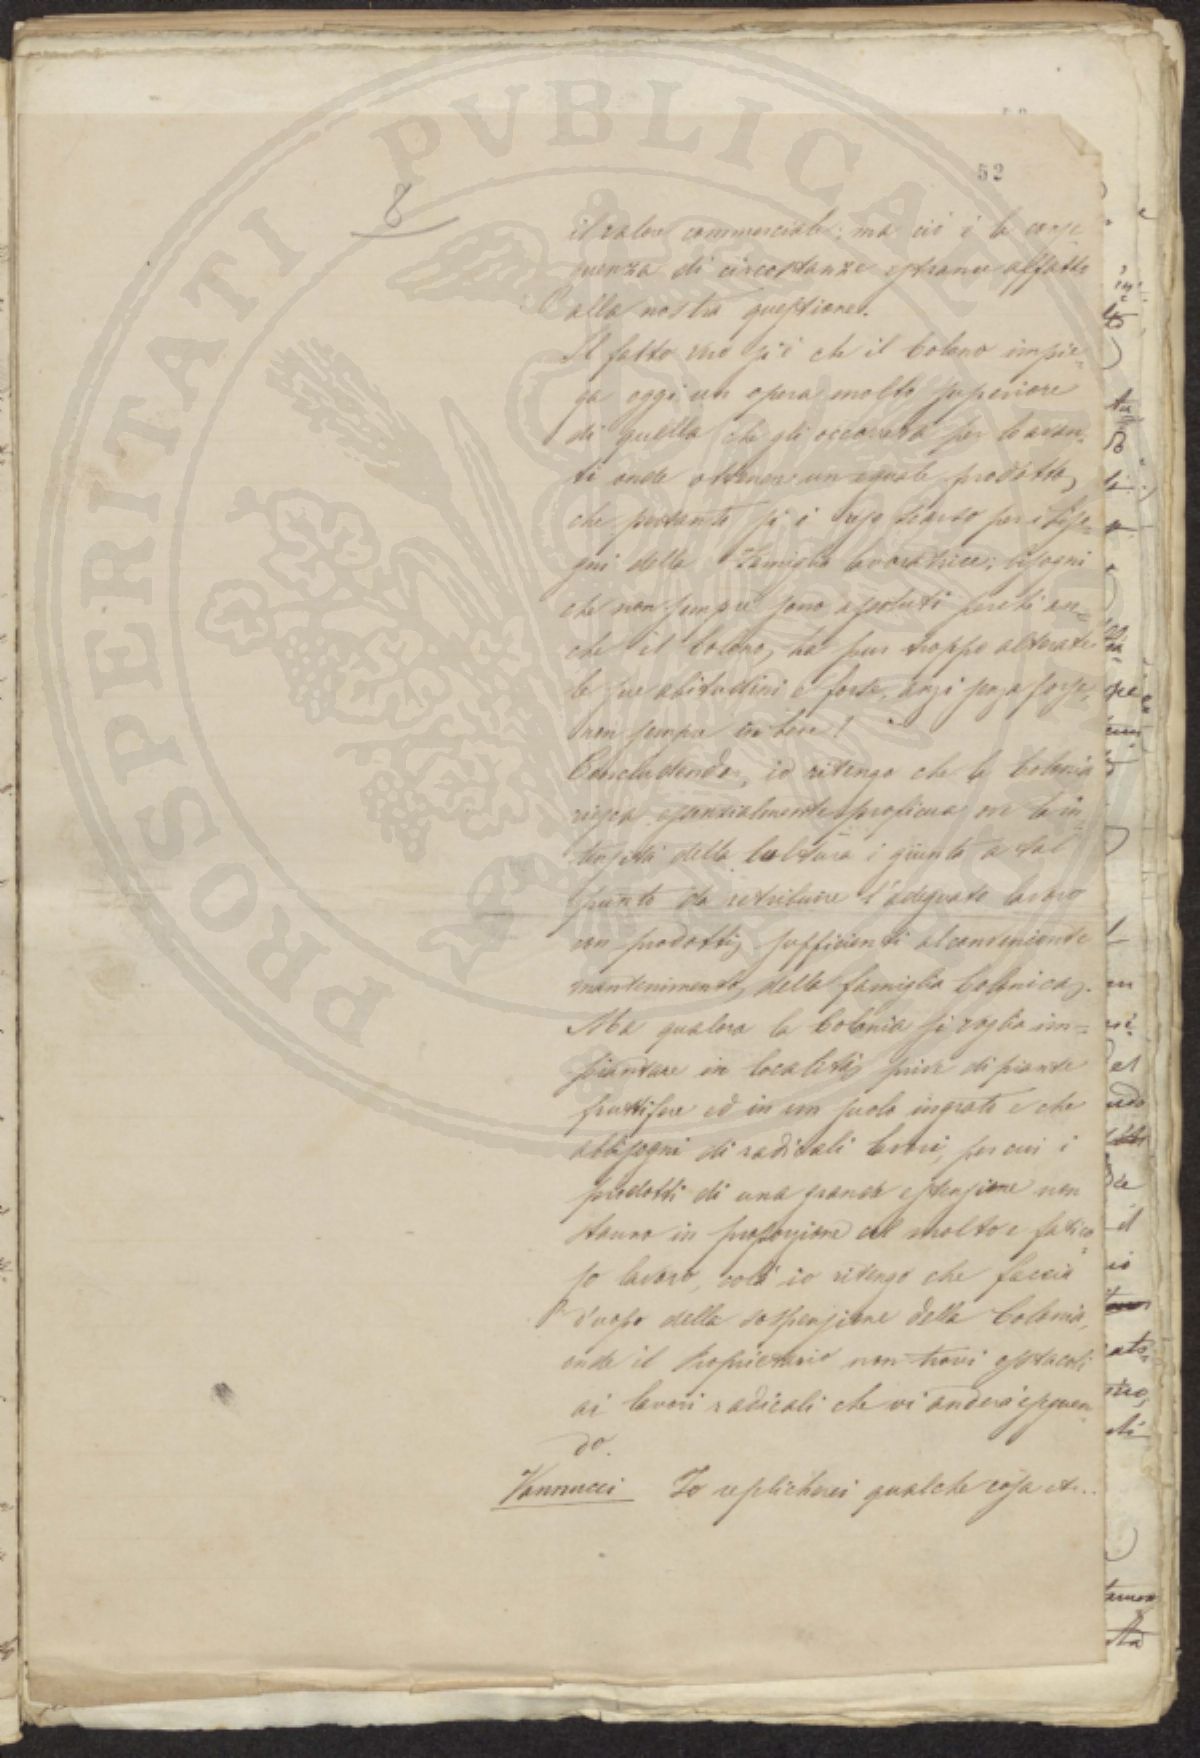 52
8
il valore commerciale; ma ciò è la conse
guenza di circostanze estranee affatto
alla nostra questione.
Il fatto vero si è che il Colono impie=
ga oggi un opera molto superiore
di quella che gli occorreva per lo avan=
ti onde ottenere un eguale prodotto,
che pertanto si è reso scarso per i biso=
gni della Famiglia lavoratrice; bisogni
che non sempre sono assoluti perché an=
che il Colono, ha pur troppo alterate
le sue abitudini e forse, anzi senza forse,
non sempre in bene!
Concludendo, io ritengo che la Colonia
riesca essenzialmente proficua, ove la in=
tensità della Cultura è giunta a tal
punto da retribuire l'adeguato lavoro
con prodotti, sufficienti al conveniente
mantenimento, della famiglia Colonica.
Ma qualora la Colonia si voglia im=
piantare in località prive di piante
fruttifere ed in un suolo ingrato e che
abbisogni di radicali lavori, per cui i
prodotti di una grande estensione non
stanno in proporzione col molto e fatico
so lavoro, colà io ritengo che faccia
d'uopo della sospensione della Colonia,
onde il Proprietario non trovi ostacoli
ai lavori radicali che vi anderà eseguen
do.
Vannucci Io replicherei qualche cosa
PROSPERITATI PVBLICAE